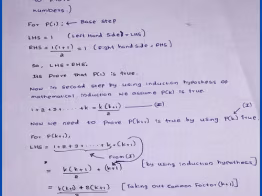 numbers.)
For P(1) : ← Base Step
LHS = 1 (Left Hand Side) = LHS)
RHS = 1(1+1)/2 = 1 (Right hand side = RHS)
So, LHS = RHS.
Its Prove that P(1) is true.
Now in Second step by using induction hypothesis on
mathematical induction we assume P(k) is true.
1+2+3+---+k = k(k+1)/2 — (I)
Now we need to Prove P(k+1) is true by using P(k) true
For P(k+1),
LHS = 1+2+3+---+k+(k+1)
From (I)
= k(k+1)/2 + (k+1) [by using induction hypothesis]
= k(k+1) + 2(k+1)/2 [Taking out Common factor (k+1)]